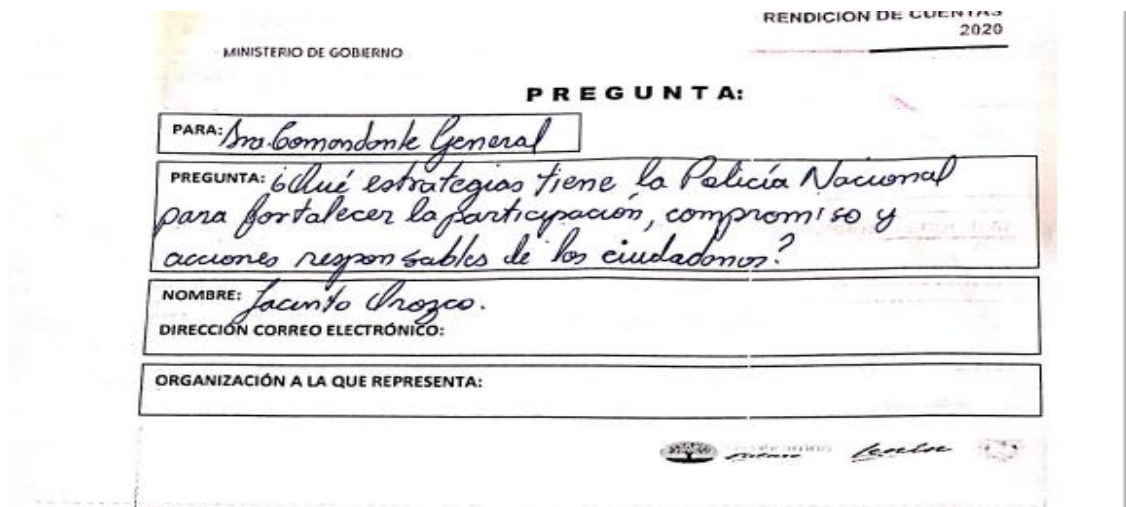 RENDICION DE CUENTAS
2020
MINISTERIO DE GOBIERNO
PREGUNTA:
PARA: Sra. Comandante General
PREGUNTA: ¿Qué estrategias tiene la Policía Nacional
para fortalecer la participación, compromiso y
acciones responsables de los ciudadanos?
NOMBRE: Jacinto Orozco.
DIRECCIÓN CORREO ELECTRÓNICO:
ORGANIZACIÓN A LA QUE REPRESENTA:
Lenín